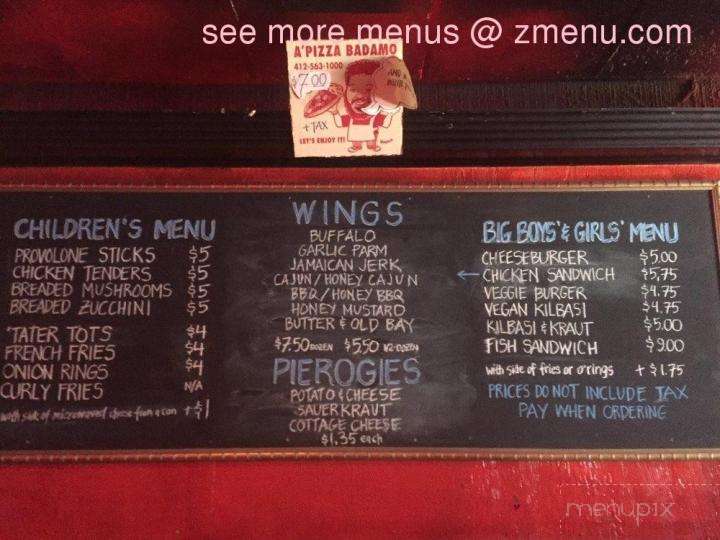 see more menus @ zmenu.com
A'PIZZA BADAMO
412-563-1000
$7.00
+ TAX
LET'S ENJOY IT!
CHILDREN'S MENU
PROVOLONE STICKS $5
CHICKEN TENDERS $5
BREADED MUSHROOMS $5
BREADED ZUCCHINI $5
'TATER TOTS $4
FRENCH FRIES $4
ONION RINGS $4
CURLY FRIES N/A
with side of microwaved cheese from a can + $1
WINGS
BUFFALO
GARLIC PARM
JAMAICAN JERK
CAJUN / HONEY CAJUN
BBQ / HONEY BBQ
HONEY MUSTARD
BUTTER & OLD BAY
$7.50 DOZEN $5.50 1/2-DOZEN
PIEROGIES
POTATO & CHEESE
SAUERKRAUT
COTTAGE CHEESE
$1.35 each
BIG BOYS' & GIRLS' MENU
CHEESEBURGER $5.00
← CHICKEN SANDWICH $5.75
VEGGIE BURGER $4.75
VEGAN KILBASI $4.75
KILBASI & KRAUT $5.00
FISH SANDWICH $9.00
with side of fries or o'rings + $1.75
PRICES DO NOT INCLUDE TAX
PAY WHEN ORDERING
menupix